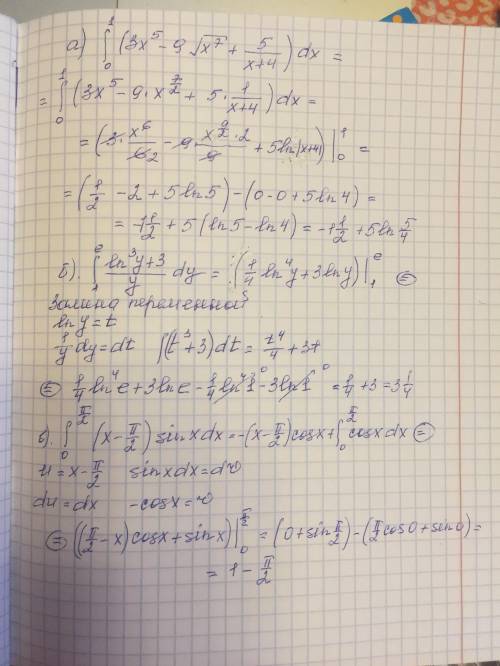 а) ∫₀¹ (3x⁵ − 9√x⁷ + 5/(x+4)) dx =
= ∫₀¹ (3x⁵ − 9·x^(7/2) + 5·1/(x+4)) dx =
= (3·x⁶/6₂ − 9·x^(9/2)·2/9 + 5ln|x+4|) |₀¹ =
= (1/2 − 2 + 5ln5) − (0−0+5ln4) =
= −1 1/2 + 5(ln5 − ln4) = −1 1/2 + 5ln 5/4
б). ∫₁ᵉ (ln³y+3)/y dy = (1/4 ln⁴y + 3lny) |₁ᵉ ⊜
Замина переменной
lny = t
1/y dy = dt ∫(t³+3)dt = t⁴/4 + 3t
⊜ 1/4 ln⁴e + 3lne − 1/4 ln⁴1⁰ − 3ln1⁰ = 1/4 + 3 = 3 1/4
в). ∫₀^(π/2) (x − π/2) sinx dx = −(x − π/2) cosx + ∫₀^(π/2) cosx dx ⊜
u = x − π/2 sinx dx = dv
du = dx −cosx = v
⊜ ((π/2 − x) cosx + sinx) |₀^(π/2) = (0 + sin π/2) − (π/2 cos0 + sin0) =
= 1 − π/2